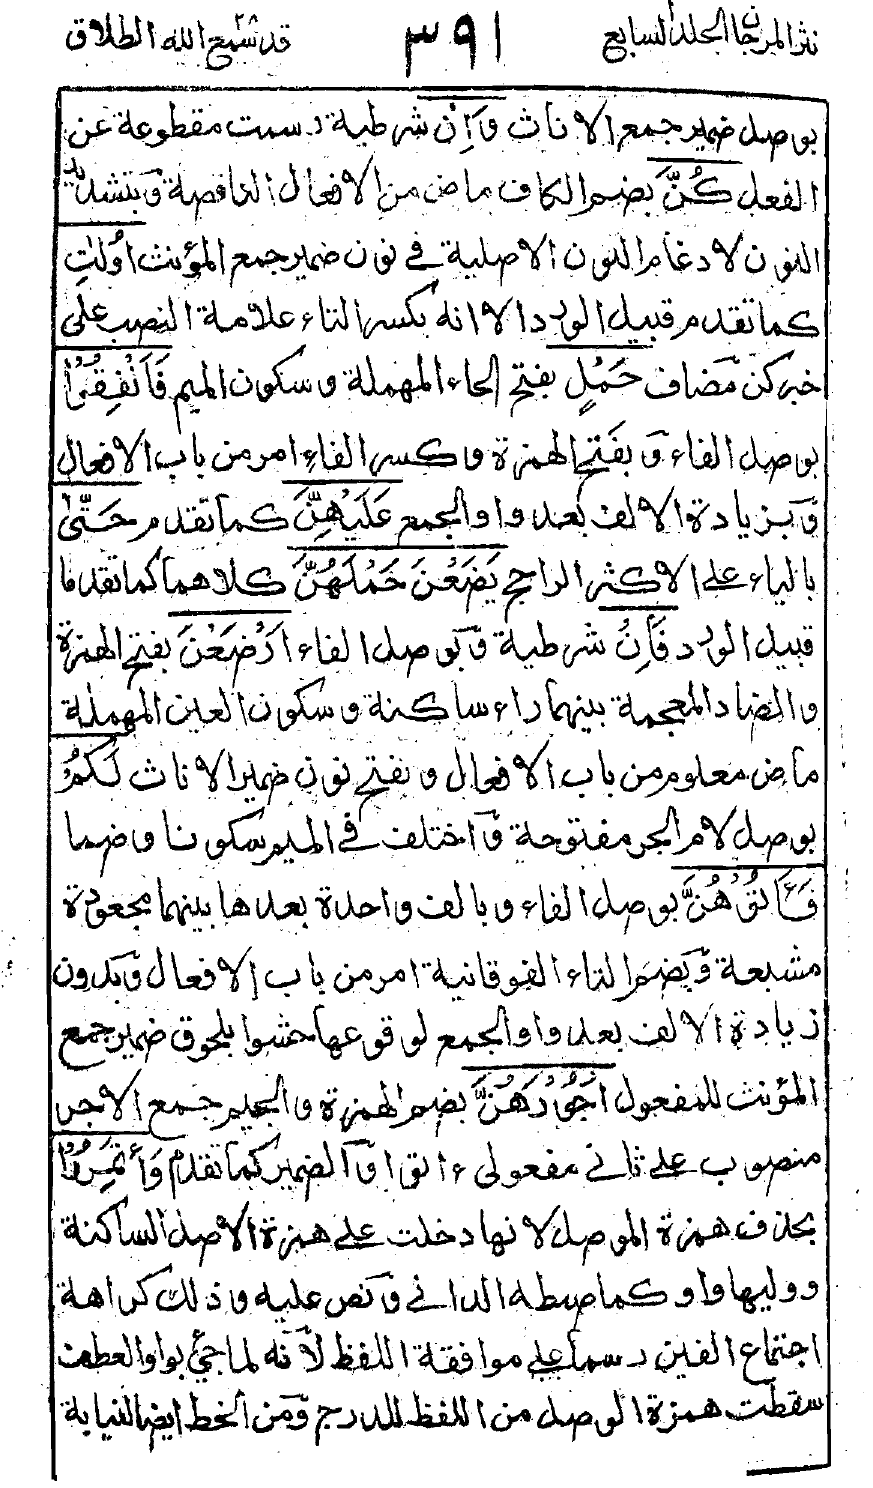 نثر المرجان المجلد السابع ٣٩١ قد سمع الله ٢٨ الطلاق
بوصل ضمير جمع الاناث وَاِنْ شرطية رسمت مقطوعة عن
الفعل كُنَّ بضم الكاف ماض من الافعال الناقصة وَبتشديد
النون لادغام النون الاصلية في نون ضمير جمع المؤنث اُولٰتِ
كما تقدم قبيل الورد الا انه بكسر التاء علامة النصب على
خبر كن مضاف حَمْلٍ بفتح الحاء المهملة وسكون الميم فَاَنْفِقُوْا
بوصل الفاء وَبفتح الهمزة وكسر الفاء امر من باب الافعال
وَبزيادة الالف بعد واو الجمع عَلَيْهِنَّ كما تقدم حَتّٰى
بالياء على الاكثر الراجح يَضَعْنَ حَمْلَهُنَّ كلاهما كما تقدما
قبيل الورد فَاِنْ شرطية وَبوصل الفاء اَرْضَعْنَ بفتح الهمزة
والضاد المعجمة بينهما راء ساكنة وسكون العين المهملة
ماض معلوم من باب الافعال وبفتح نون ضمير الاناث لَكُمْ
بوصل لام الجر مفتوحة وَاختلف في الميم سكونا وضما
فَـَٔاتُوْهُنَّ بوصل الفاء وبالف واحدة بعدها بينهما مجعودة
مشبعة وَبضم التاء الفوقانية امر من باب الافعال وَبدون
زيادة الالف بعد واو الجمع لوقوعها حشوا بلحوق ضمير جمع
المؤنث للمفعول اُجُوْرَهُنَّ بضم الهمزة والجيم جمع الاجر
منصوب على ثاني مفعولي ءاتوا وَالضمير كما تقدم وَأْتَمِرُوْا
بحذف همزة الوصل لانها دخلت على همزة الاصل الساكنة
ووليها واو كما ضبطه الداني وَنص عليه وذلك كراهة
اجتماع الفين رسما على موافقة اللفظ لانه لما جئ بواو العطف
سقطت همزة الوصل من اللفظ للدرج وَمن الخط ايضا لنيابة